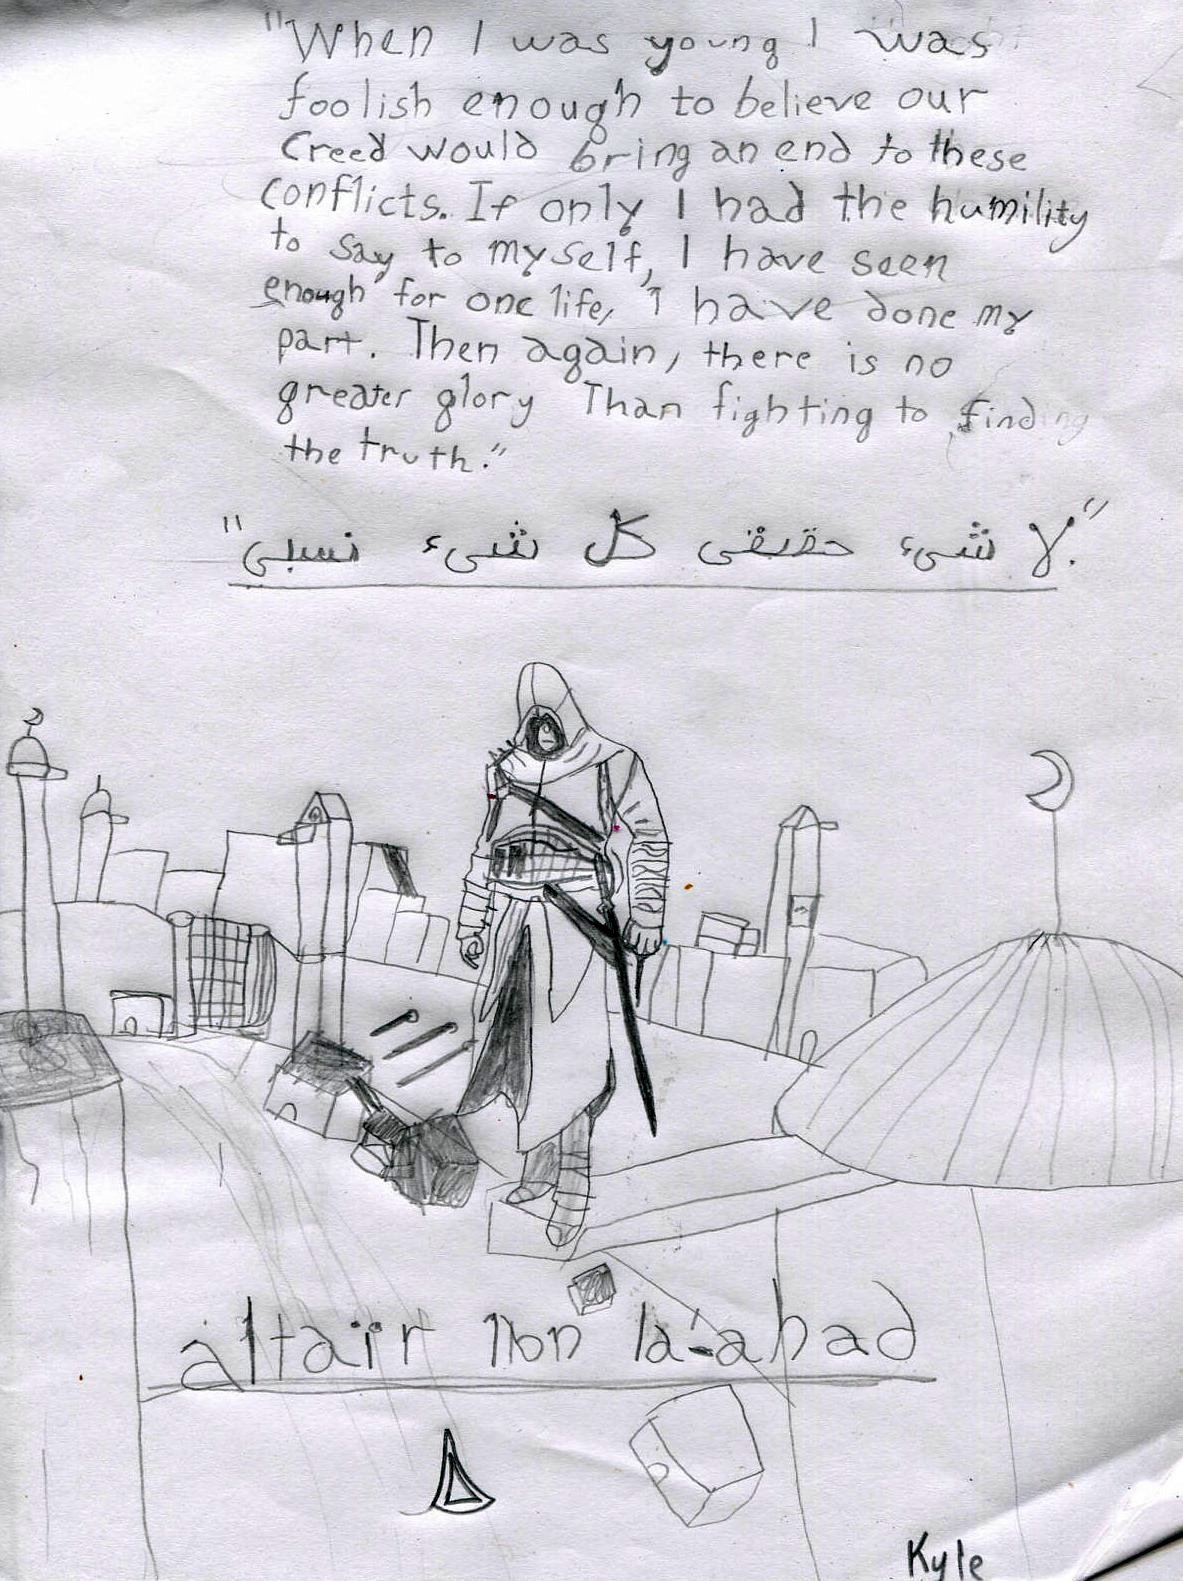 "When I was young I was
foolish enough to believe our
Creed would bring an end to these
conflicts. If only I had the humility
to say to myself, I have seen
enough for one life, I have done my
part. Then again, there is no
greater glory Than fighting to finding
the truth."
"لا شیء حقیقی کل شیء نسبی."
altaïr Ibn la-ahad
Kyle